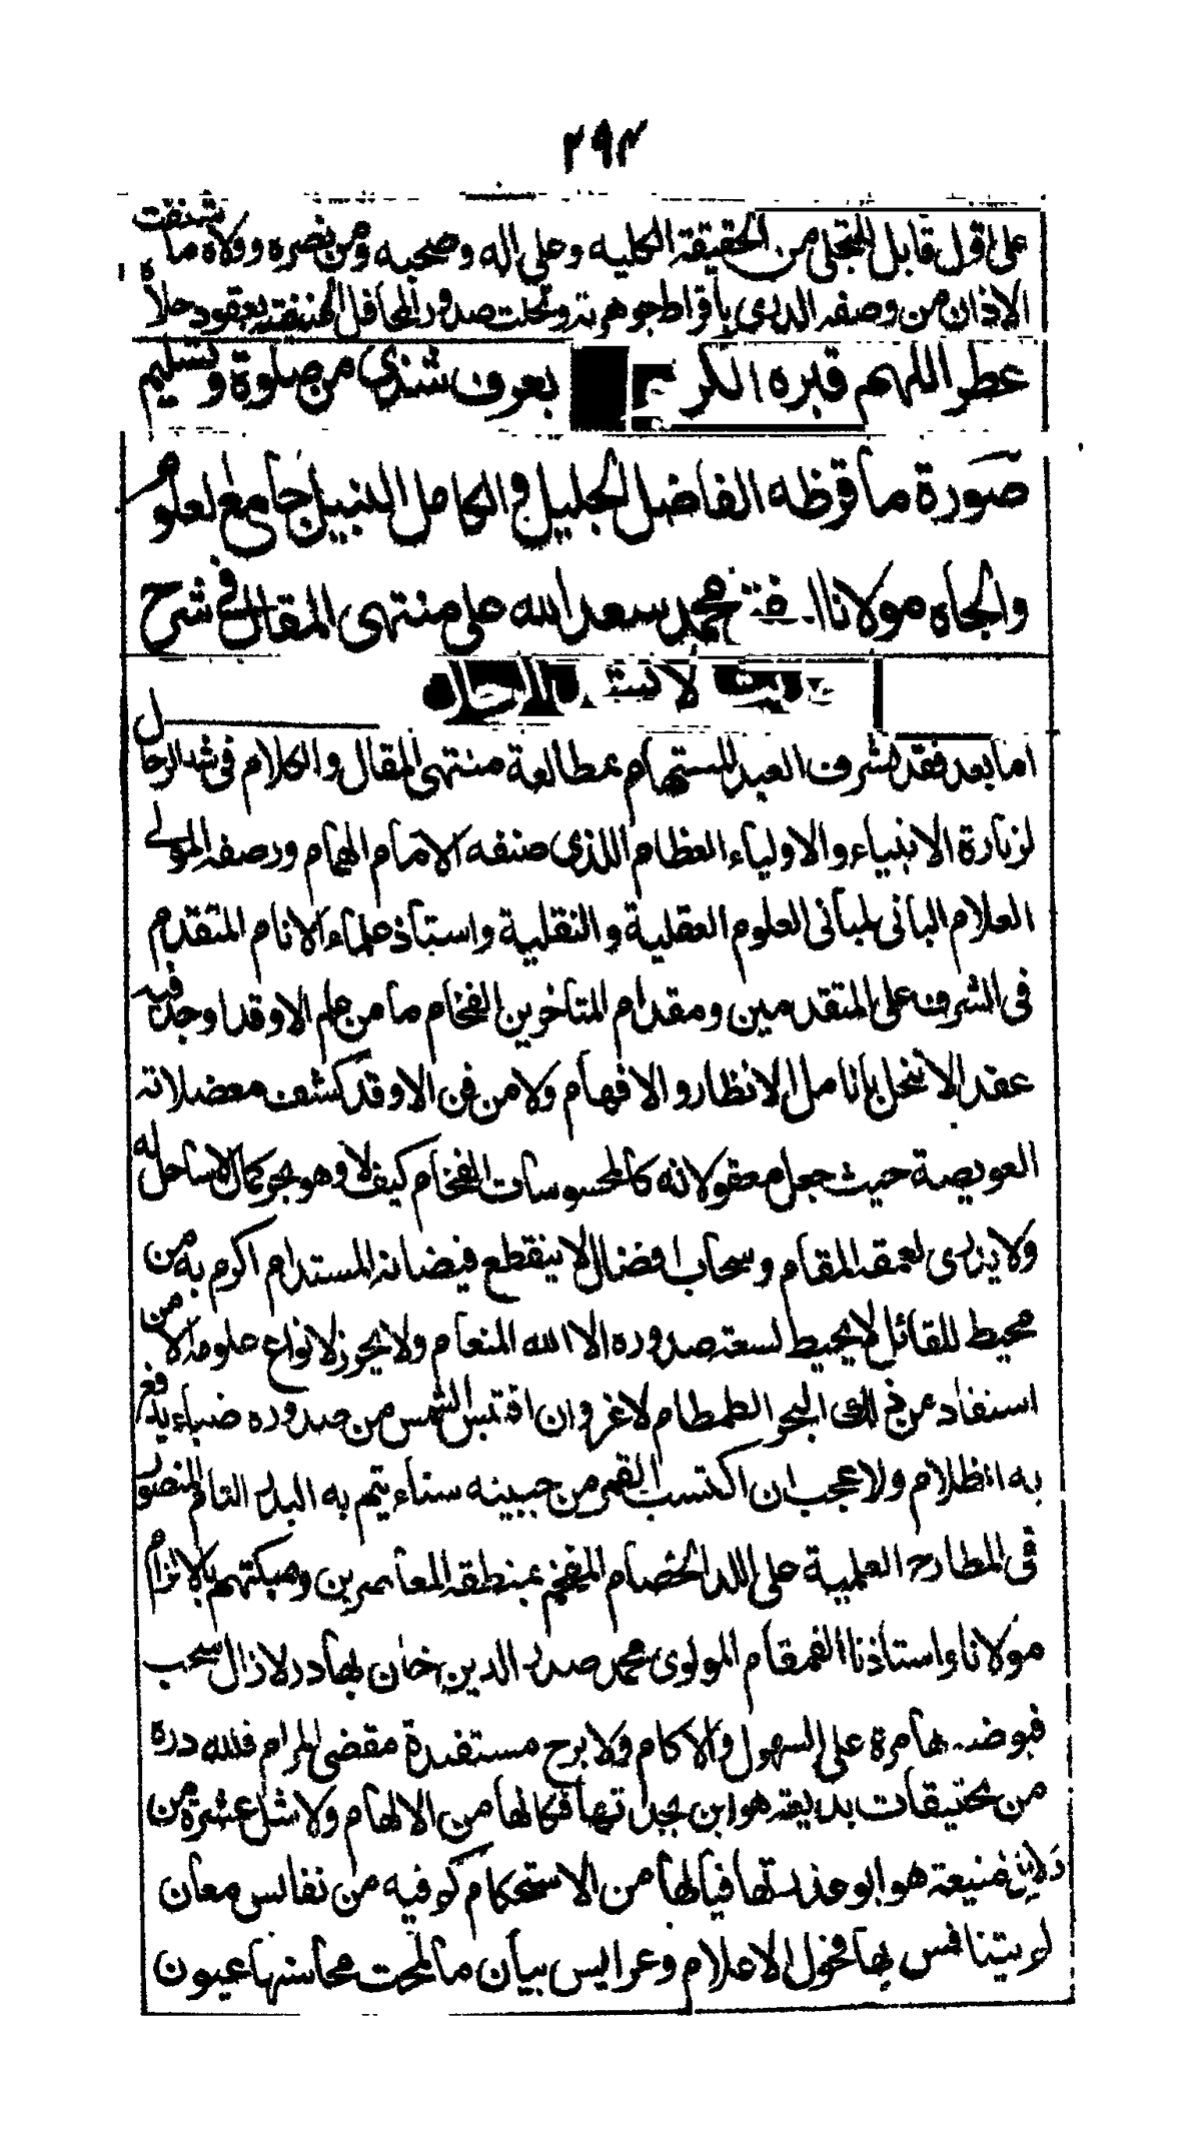 ٢٩٣
على اول قابل للتجلى من الحقيقة الكليه وعلى اله وصحبه ومن نصره ووالاه ما شنفت
الاذان من وصفه الدرى باقراط جوهرته وتحلت صدور المحافل بعقود حلاه
عطر اللهم قبره الكريم بعرف شذى من صلوة وتسليم
صورة ما قرظه الفاضل الجليل والكامل النبيل جامع العلوم
والجاه مولانا المفتى محمد سعد الله على منتهى المقال فى شرح
حديث لا تشد الرحال
اما بعد فقد تشرف العبد المستهام بمطالعة منتهى المقال والكلام فى شد الرحال
لزيارة الانبياء والاولياء العظام اللذى صنفه الامام الهمام ورصفه المولى
العلام البانى لمبانى العلوم العقلية والنقلية واستاذ علماء الانام المتقدم
فى الشرف على المتقدمين ومقدام المتاخرين الفخام ما من علم الا وقد اوجد فيه
عقد الا تنحل بانامل الانظار والافهام ولا من فن الا وقد كشف معضلاته
العويصة حيث جعل معقولاته كالمحسوسات الفخام كيف لا وهو بحر كمال لا ساحل له
ولا يدرى لعمقه المقام وسحاب افضال لا ينقطع فيضانه المستدام اكرم به من
محيط للقائل لا يحيط لسعة صدوره الا الله المنعام ولا يحوز لانواع علومه الا من
استفاد من ذلك البحر الطمطام لا غرو ان اقتبس الشمس من صدوره ضياء يدفع
به الظلام ولا عجب ان اكتسب القمر من جبينه سناء يتم به البدر التام المنصور
فى المطارحة العلمية على اللد الخصام المفخم بمنطقه المعاصرين ومبكتهم بالالزام
مولانا واستاذنا القمقام المولوى محمد صدر الدين خان بهادر لا زال سحب
فيوضه هامرة على السهول والاكام ولا برح مستفيدة مقضى المرام فلله دره
من تحقيقات بديعة هو ابن بجدتها فكانها من الالهام ولا شل عشره من
دلائل منيعة هو ابو عذرتها فيالها من الاستحكام كم فيه من نفائس معان
لم يتنافس بها فحول الاعلام وعرايس بيان ما لمحت محاسنها عيون